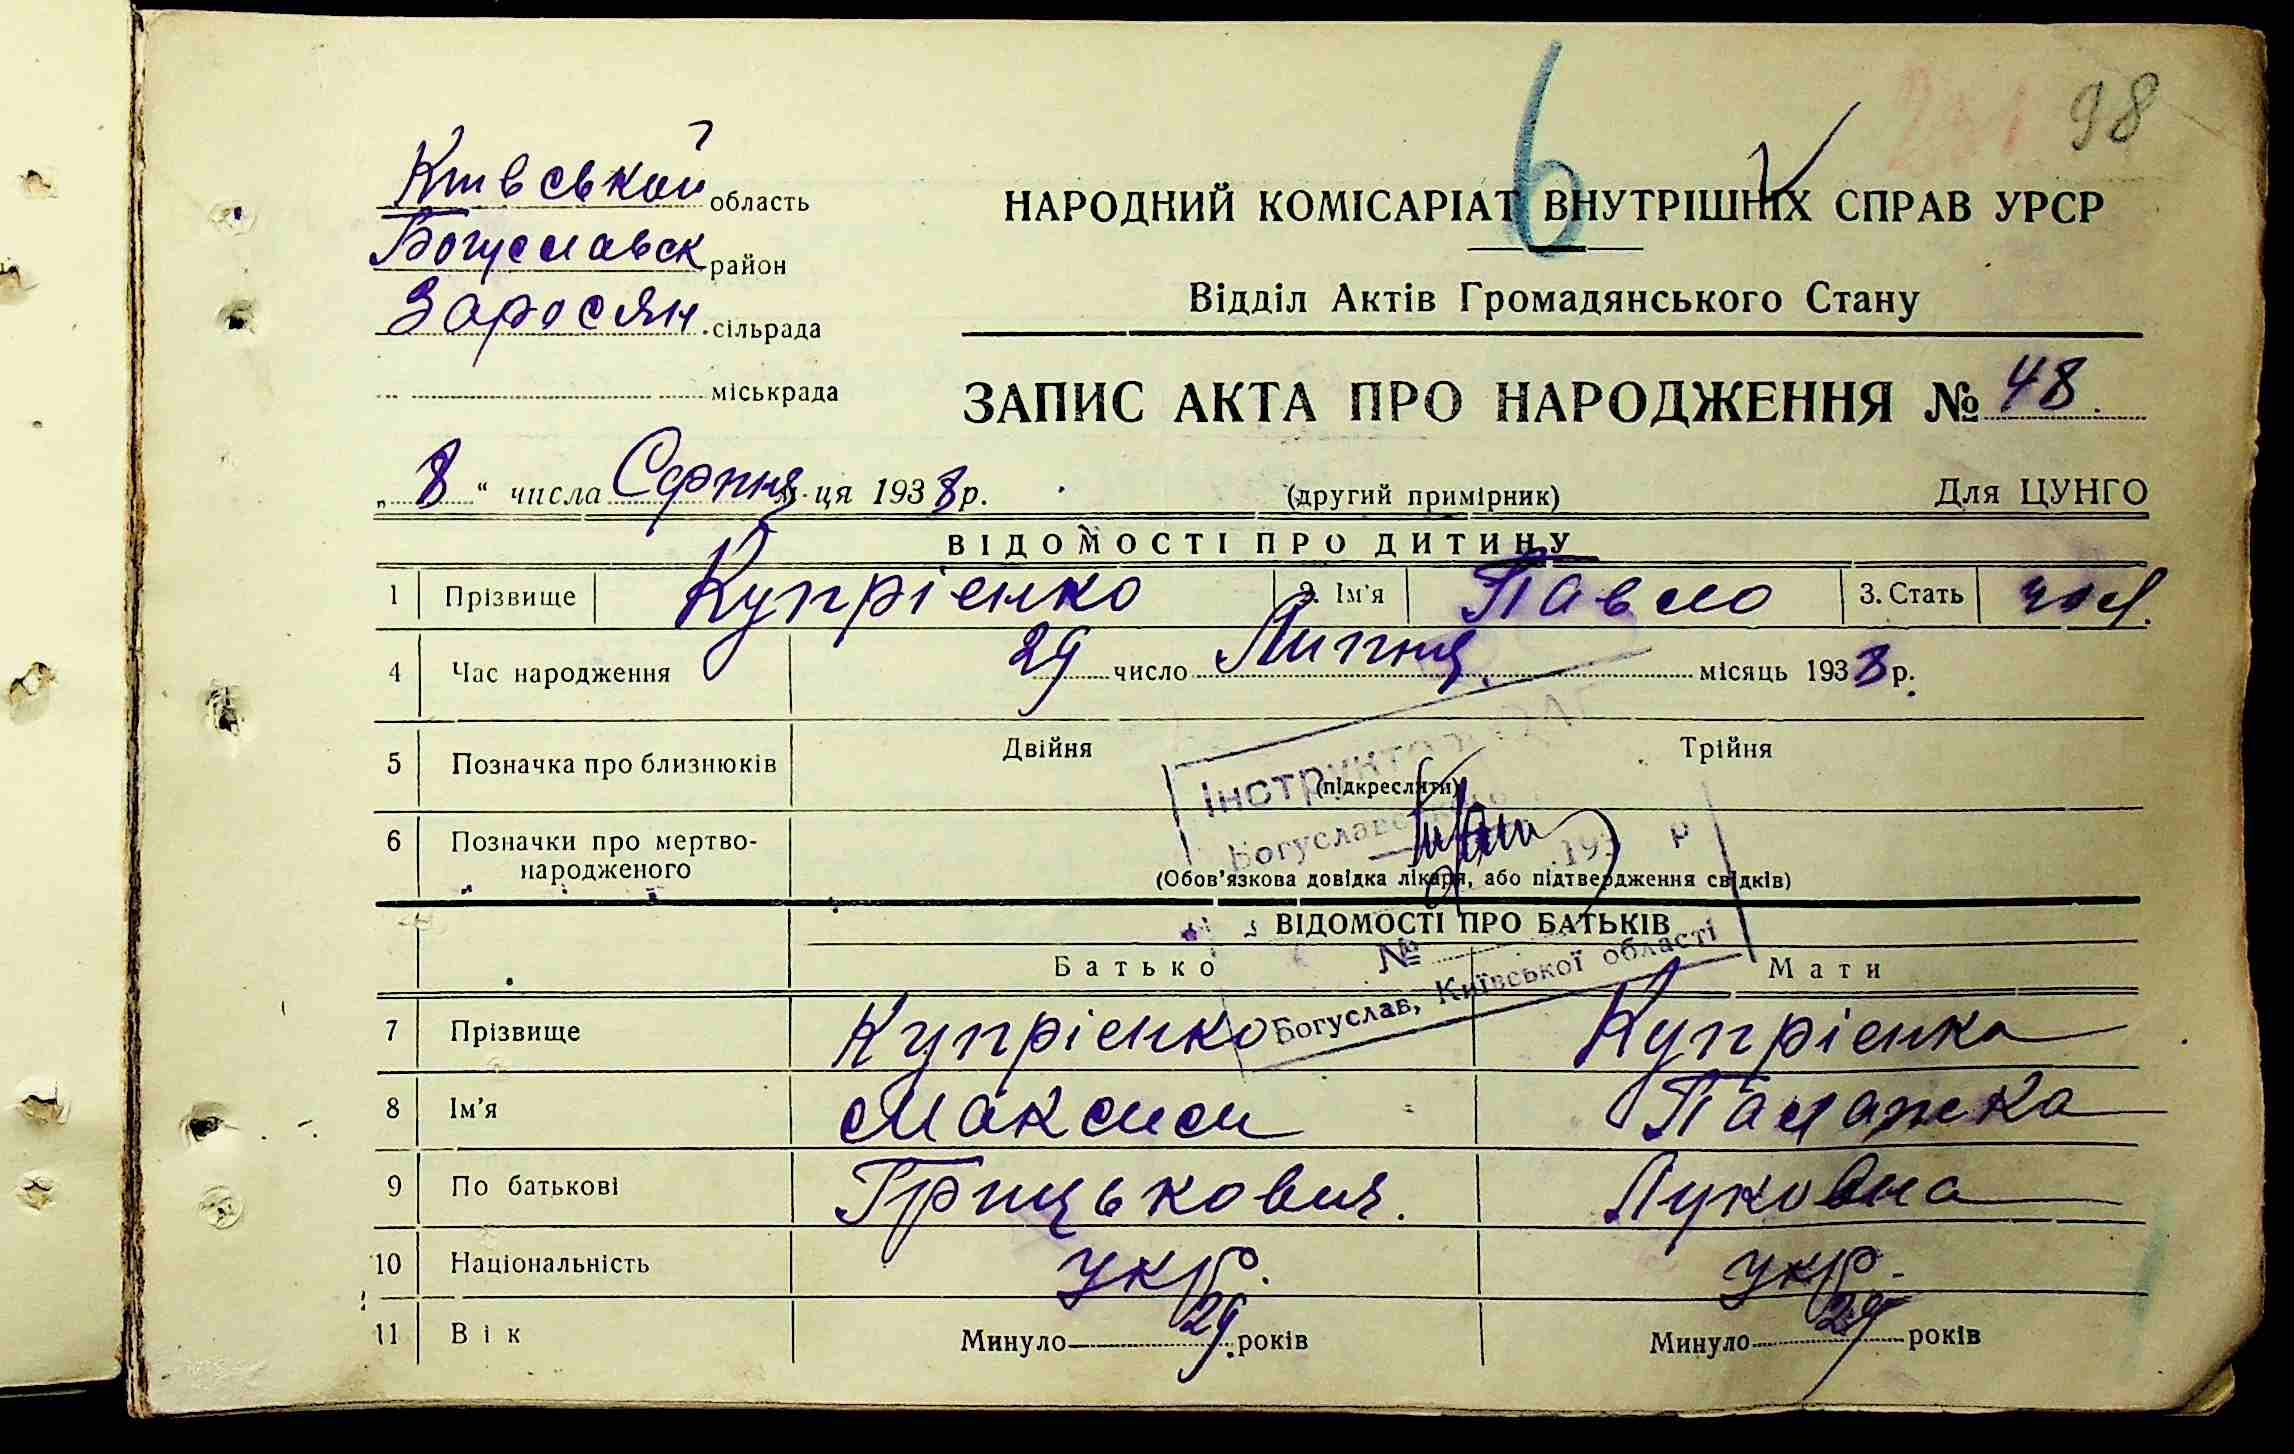 98
Київської область
НАРОДНИЙ КОМІСАРІАТ ВНУТРІШНІХ СПРАВ УРСР
6
Богуславськ район
Відділ Актів Громадянського Стану
Заросян. сільрада
міськрада
ЗАПИС АКТА ПРО НАРОДЖЕННЯ № 48.
„ 8 “ числа Серпня м-ця 1938 р. (другий примірник) Для ЦУНГО
ВІДОМОСТІ ПРО ДИТИНУ
1 Прізвище Купрієнко 2. Ім'я Павло 3. Стать чол.
4 Час народження 29 число Липня місяць 1938 р.
5 Позначка про близнюків Двійня Трійня
(підкреслити)
6 Позначки про мертво-
народженого
(Обов'язкова довідка лікаря, або підтвердження свідків)
Інструктор ЗАГС
Богуславського
193 р
№
Богуслав, Київської області
ВІДОМОСТІ ПРО БАТЬКІВ
Батько Мати
7 Прізвище Купрієнко Купрієнка
8 Ім'я Максим Паламка
9 По батькові Грицькович. Луковна
10 Національність укр. укр.
11 Вік Минуло 29 років Минуло 29 років